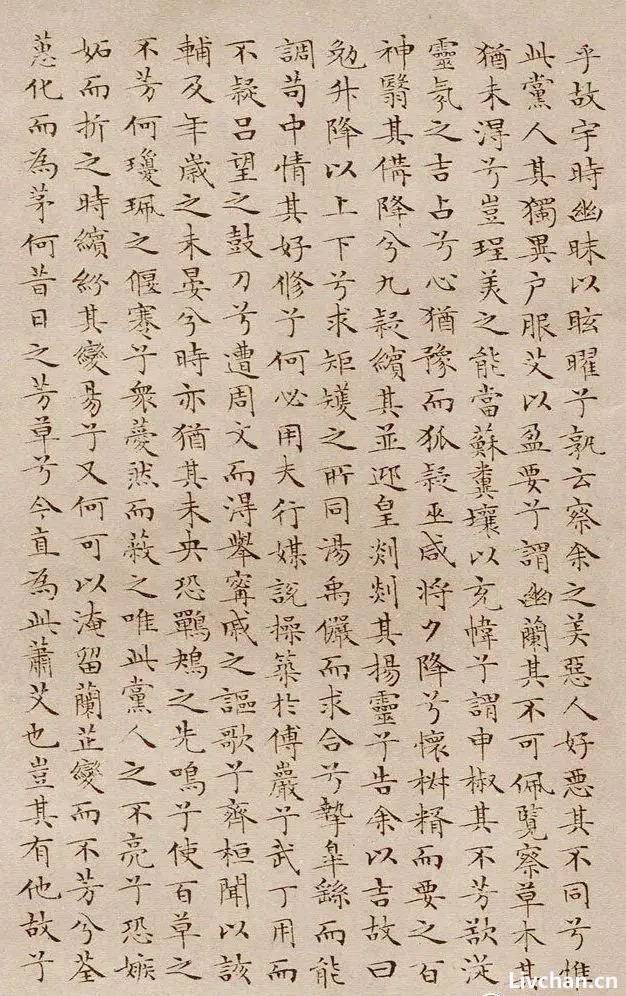 乎故宇時幽昧以眩曜兮孰云察余之美惡人好惡其不同兮惟
此黨人其獨異户服艾以盈要兮謂幽蘭其不可佩覽察草木其
猶未得兮豈珵美之能當蘇糞壤以充幃兮謂申椒其不芳欲從
靈氛之吉占兮心猶豫而狐疑巫咸将夕降兮懷椒糈而要之百
神翳其備降兮九疑繽其並迎皇剡剡其揚靈兮告余以吉故曰
勉升降以上下兮求矩矱之所同湯禹儼而求合兮摯臯繇而能
調苟中情其好修兮何必用夫行媒說操築於傅巖兮武丁用而
不疑吕望之鼓刀兮遭周文而得舉甯戚之謳歌兮齊桓聞以該
輔及年歲之未晏兮時亦猶其未央恐鶗鴂之先鳴兮使百草之
不芳何瓊珮之偃蹇兮衆薆然而蔽之唯此黨人之不亮兮恐嫉
妬而折之時繽紛其變易兮又何可以淹留蘭芷變而不芳兮荃
蕙化而為茅何昔日之芳草兮今直為此蕭艾也豈其有他故兮
Livchan.cn